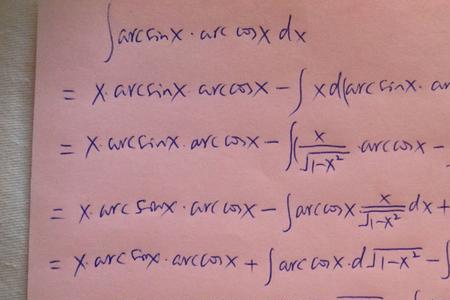 ∫arcsinx · arccosx dx
= x·arcsinx·arccosx − ∫xd(arcsinx·ar
= x·arcsinx·arccosx − ∫(x/√(1−x²)·arccosx −
= x·arcsinx·arccosx − ∫arccosx·x/√(1−x²)dx +
= x·arcsinx·arccosx + ∫arccosx·d√(1−x²) − ∫